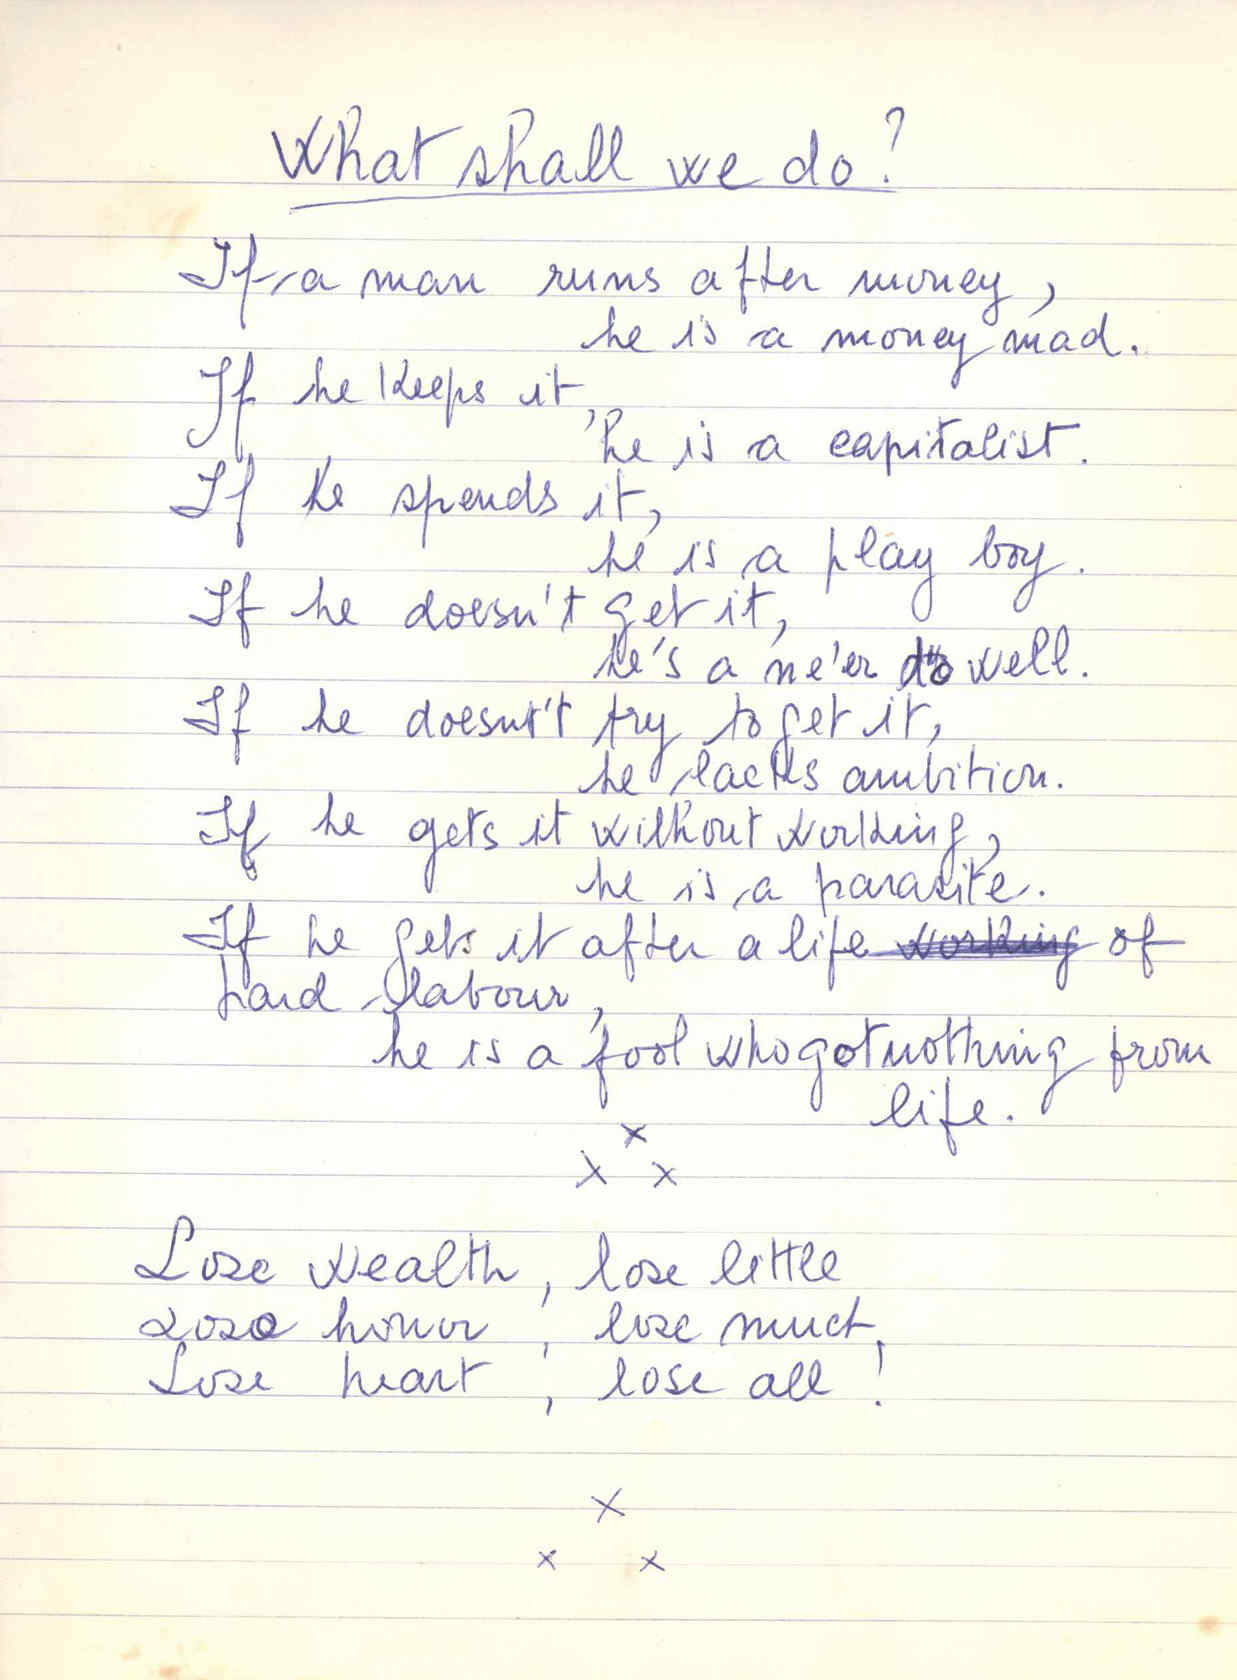 What shall we do?
If a man runs after money,
he is a money mad.
If he keeps it,
he is a capitalist.
If he spends it,
he is a play boy.
If he doesn't get it,
he's a ne'er do well.
If he doesn't try to get it,
he lacks ambition.
If he gets it without working,
he is a parasite.
If he gets it after a life working of
hard labour,
he is a fool who got nothing from
life.
x
x x
Lose wealth, lose little
Lose honor, lose much,
Lose heart, lose all!
x
x x